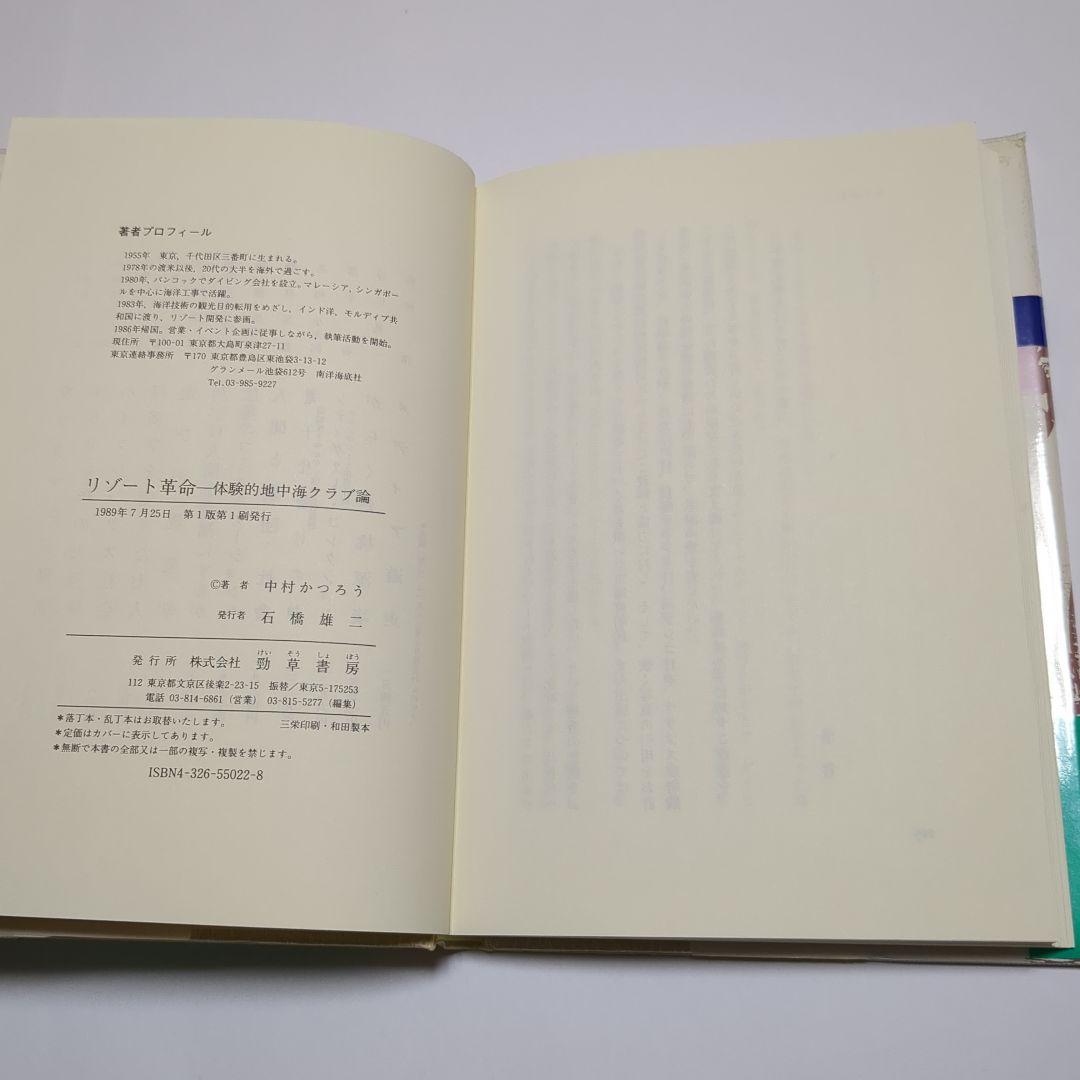 著者プロフィール
1955年 東京、千代田区三番町に生まれる。
1978年の渡米以後，20代の大半を海外で過ごす。
1980年、バンコックでダイビング会社を設立。マレーシア、シンガポー
ルを中心に海洋工事で活躍。
1983年、海洋技術の観光目的転用をめざし，インド洋，モルディブ共
和国に渡り，リゾート開発に参画。
1986年帰国。営業・イベント企画に従事しながら，執筆活動を開始。
現住所 〒100-01 東京都大島町泉津27-11
東京連絡事務所 〒170 東京都豊島区東池袋3-13-12
グランメール池袋612号 南洋海底社
Tel.03-985-9227
リゾート革命―体験的地中海クラブ論
1989年7月25日 第1版第1刷発行
©著者 中村かつろう
発行者 石橋雄二
けい そう しょ ぼう
発行所 株式会社 勁草書房
112 東京都文京区後楽2-23-15 振替／東京5-175253
電話 03-814-6861（営業） 03-815-5277（編集）
＊落丁本・乱丁本はお取替いたします。 三栄印刷・和田製本
＊定価はカバーに表示してあります。
＊無断で本書の全部又は一部の複写・複製を禁じます。
ISBN4-326-55022-8